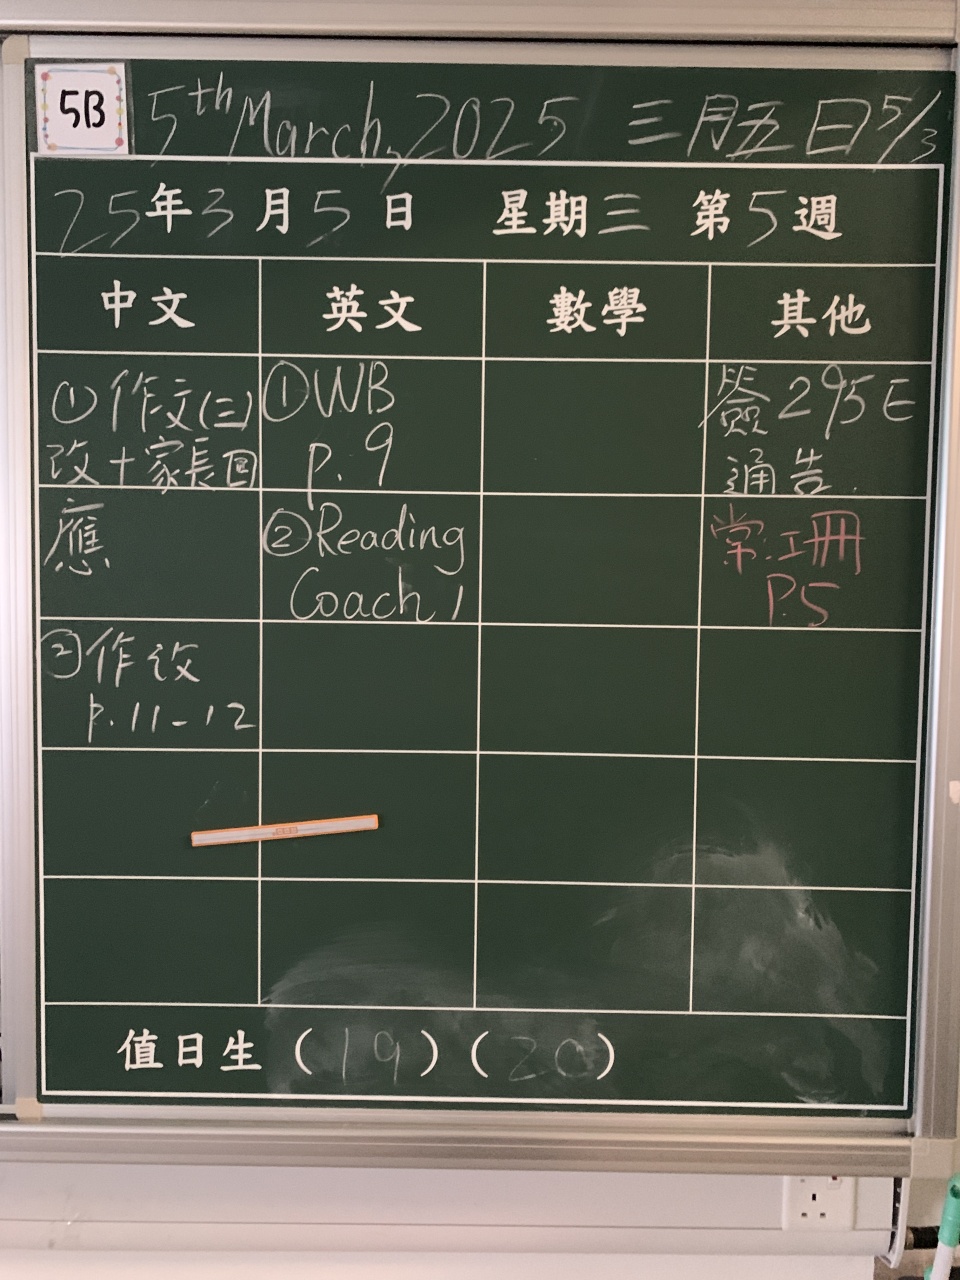 5B
5th March, 2025 三月五日 5/3
25年3月5日 星期三 第5週
中文 英文 數學 其他
①作文(三)
改+家長回
應
②作改
p.11-12
①WB
p.9
②Reading
Coach 1
簽295E
通告.
常:工冊
P.5
值日生(19)(20)